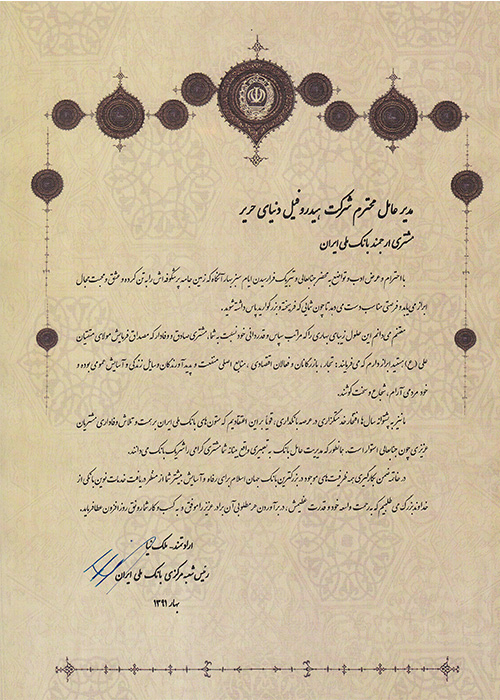 مدیر عامل محترم شرکت هیدروفیل دنیای حریر
مشتری ارجمند بانک ملی ایران
با احترام و عرض ادب و تواضع به محضر جنابعالی و تبریک فرارسیدن ایام سبز بهار آنگاه که زمین جامه پرشکوفه اش را به تن کرده و عشق و محبت مجال
ابراز می یابد و فرصتی مناسب دست می دهد تا چون شمائی که فرهیخته و بزرگوارید پاس داشته شوید.
مغتنم می دانم این حلول زیبای بهاری را که مراتب سپاس و قدردانی خود نسبت به شما، مشتری صادق و وفادار که مصداق فرمایش مولای متقیان
علی (ع) هستید ابراز دارم که می فرمایند: تجار، بازرگانان و فعالان اقتصادی، منابع اصلی منفعت و پدیدآورندگان وسایل زندگی و آسایش عمومی بوده و
خود مردمی آرام، شجاع و سخت کوشند.
ما نیز به پشتوانه سال ها افتخار خدمتگزاری در عرصه بانکداری، قویاً بر این اعتقادیم که ستون های بانک ملی ایران بر همت و تلاش و وفاداری مشتریان
عزیزی چون جنابعالی استوار است. همانطور که مدیریت عامل بانک به تعبیری واقع بینانه شما مشتری گرامی را شریک بانک می دانند.
در خاتمه ضمن بکارگیری همه ظرفیت های موجود در بزرگترین بانک جهان اسلام برای رفاه و آسایش بیشتر شما از منظر دریافت خدمات نوین بانکی از
خداوند بزرگ می طلبیم که به رحمت واسعه خود و قدرت عظیمش، در برآوردن هر مطلوبی آن برادر عزیز را موفق و به کسب و کار شما رونق روزافزون عطا فرماید.
ارادتمند - ملک نیا
رئیس شعبه مرکزی بانک ملی ایران
بهار ۱۳۹۱